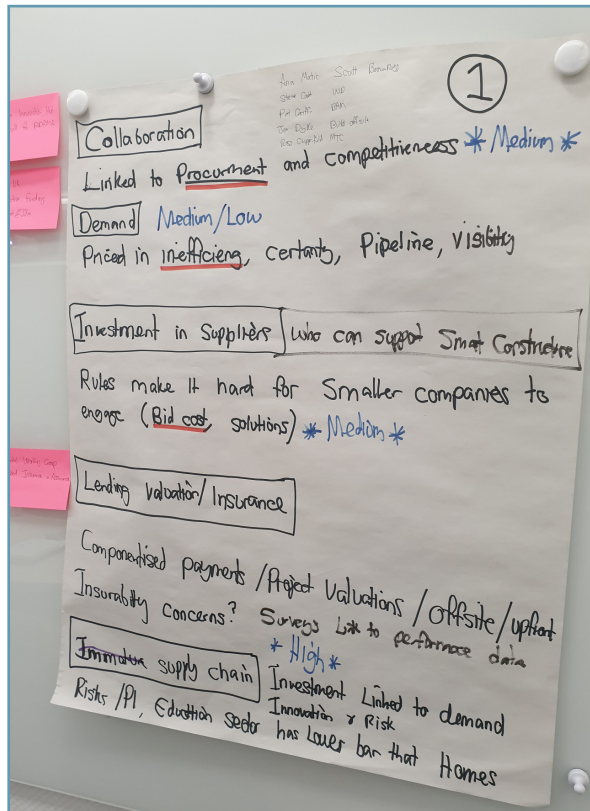 1
Scott
Collaboration
Linked to Procurment and competitiveness * Medium *
Demand Medium/Low
Priced in inefficieny, certanty, Pipeline, visibility
Investment in Suppliers Who can support Smart
Rules make it hard for Smaller companies to
engage (Bid cost, solutions) * Medium *
Lending Valuation/Insurance
Componentised payments / Project Valuations / offsite / upfront
Insurability concerns? Surveys Link to performance data
* High *
Immature supply chain Investment Linked to demand
Innovation & Risk
Risks / PI, Education sector has Lower bar that Homes